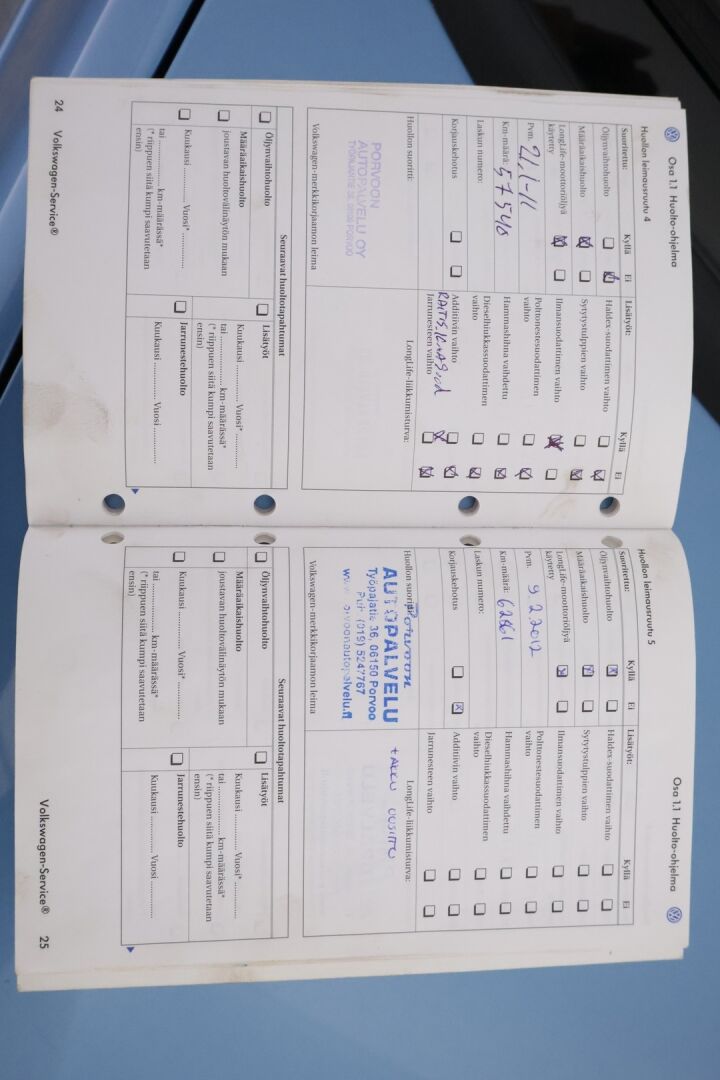 Osa 1.1 Huolto-ohjelma
Huollon leimausruutu 4
Suoritettu: Kyllä Ei
Öljynvaihtohuolto
Määräaikaishuolto
LongLife-moottoriöljyä
käytetty
Pvm. 21.1-11
Km-määrä: 57540
Laskun numero:
Korjauskehotus
Lisätyöt: Kyllä Ei
Haldex-suodattimen vaihto
Sytytystulppien vaihto
Ilmansuodattimen vaihto
Polttonestesuodattimen
vaihto
Hammashihna vaihdettu
Dieselhiukkassuodattimen
vaihto
Additiivin vaihto
Jarrunesteen vaihto
Huollon suoritti:
PORVOON
AUTOPALVELU OY
Volkswagen-merkkikorjaamon leima
LongLife-liikkumisturva:
Seuraavat huoltotapahtumat
Öljynvaihtohuolto
Määräaikaishuolto
joustavan huoltovälinäytön mukaan
Kuukausi ............... Vuosi* ...............
tai .................... km-määrässä*
(* riippuen siitä kumpi saavutetaan
ensin)
Lisätyöt
Kuukausi ............... Vuosi* ...............
tai .................... km-määrässä*
(* riippuen siitä kumpi saavutetaan
ensin)
Jarrunestehuolto
Kuukausi ............... Vuosi ...............
24 Volkswagen-Service®
Osa 1.1 Huolto-ohjelma
Huollon leimausruutu 5
Suoritettu: Kyllä Ei
Öljynvaihtohuolto
Määräaikaishuolto
LongLife-moottoriöljyä
käytetty
Pvm. 9.2.2012
Km-määrä:
Laskun numero:
Korjauskehotus
Lisätyöt: Kyllä Ei
Haldex-suodattimen vaihto
Sytytystulppien vaihto
Ilmansuodattimen vaihto
Polttonestesuodattimen
vaihto
Hammashihna vaihdettu
Dieselhiukkassuodattimen
vaihto
Additiivin vaihto
Jarrunesteen vaihto
Huollon suoritti:
Porvoon
AUTOPALVELU
Työpajatie 36, 06150 Porvoo
Puh. (019) 5247767
www.porvoonautopalvelu.fi
Volkswagen-merkkikorjaamon leima
LongLife-liikkumisturva:
+ AKKU UUSITTU
Seuraavat huoltotapahtumat
Öljynvaihtohuolto
Määräaikaishuolto
joustavan huoltovälinäytön mukaan
Kuukausi ............... Vuosi* ...............
tai .................... km-määrässä*
(* riippuen siitä kumpi saavutetaan
ensin)
Lisätyöt
Kuukausi ............... Vuosi* ...............
tai .................... km-määrässä*
(* riippuen siitä kumpi saavutetaan
ensin)
Jarrunestehuolto
Kuukausi ............... Vuosi ...............
Volkswagen-Service® 25